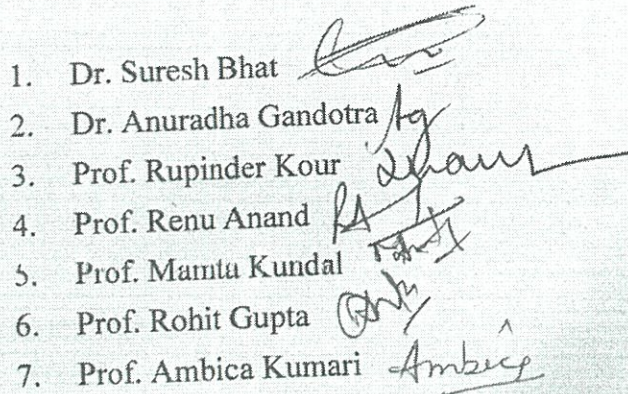 1. Dr. Suresh Bhat
2. Dr. Anuradha Gandotra Ag
3. Prof. Rupinder Kour
4. Prof. Renu Anand RA
5. Prof. Mamta Kundal
6. Prof. Rohit Gupta
7. Prof. Ambica Kumari Ambica